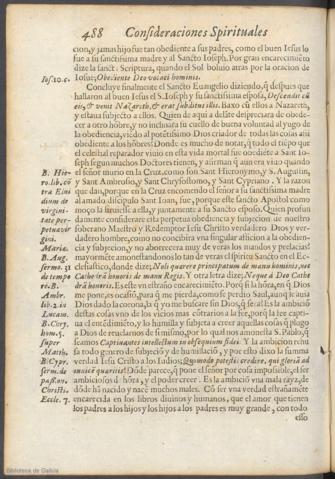 488 Consideraciones Spirituales
cion, y jamas hijo fue tan obediente a sus padres, como el buen Iesus lo
fue a su sanctissima madre y al Sancto Ioseph. Por gran encarecimiẽto
dize la sanct. Scriptura, quando el Sol boluio atras por la oracion de
Iosue; Obediente Deo vocati hominis.
Concluye finalmente el Sancto Euangelio diziendo, q̃ despues que
hallaron al buen Iesus el S. Ioseph y su sanctissima esposa, Descendit cũ
eis, & venit Nazareth, & erat subditus illis. Baxo cõ ellos a Nazareth,
y estaua subjecto a ellos. Quien de aqui a delãte despreciara de obede-
cer a otro hõbre, y no inclinara el cuello de buena voluntad al yugo de
la obediencia, viẽdo al potẽtissimo Dios criador de todas las cosas assi
obediente a los hõbres? Donde es mucho de notar, q̃ todo el tiẽpo que
el celestial reparador viuio en esta vida mortal fue obediẽte a Sant Io-
seph segun muchos Doctores tienen, y afirman q̃ aun era viuo quando
el señor murio en la Cruz. como son Sant Hieronymo, y S. Augustin,
y Sant Ambrosio, y Sant Chrysostomo, y Sant Cypriano. Y la razon
que dan, porque en la Cruz encomendo el señor a su sanctissima madre
al amado discipulo Sant Ioan, fue, porque este sancto Apostol como
moço la siruiesse a ella, y juntamente a su Sancto esposo. Quien pues
profundamente considerare esta perpetua obediencia y subjecion de nuestro
soberano Maestro y Redemptor Iesu Christo verdadero Dios y ver-
dadero hombre, como no concibira vna singular aficion a la obedien-
cia y subjecion, y no aborrecera muy de veras los mandos y prelacias?
mayormẽte amonestandonos lo tan de veras el spiritu Sancto en el Ec-
clesiastico, donde dize; Noli quærere principatum de manu homini, nec
Cathedrã honoris de manu Regis. Y otra letra dize; Neque à Deo Cathe
drã honoris. Es este vn estraño encarecimiento. Porq̃ si la hõra, en q̃ Dios
me pone, es ocasiõ, para q̃ me pierda, como se perdio Saul, aunq̃ le auia
Dios dado la corona, la q̃ yo me buscare sin Dios, q̃ seral Es la ambiciõ
destas cosas vno de los vicios mas cõtrarios a la fee, porq̃ la fee capti-
ua el entẽdimiẽto, y lo humilla y subjeta a creer aquellas cosas q̃ plogo
a Dios de reuelarnos de si mismo, por lo qual nos amonesta S. Pablo, q̃
seamos Captinantes intellectum in obsequium fidei. Y la ambicion rehu
sa todo genero de subjecion y de humillaciõ, y por esto dixo la summa
verdad Iesu Cristo a los Iudios; Quomodo potestis credere, qui gloriã ad
inuicẽ quæritis? Dõde parece, q̃ pone el señor por cosa impossible, el ser
ambiciosos d hõra, y el poder creer. Es la ambiciõ vna mala rayz, de
dõde hã nacido y nacẽ muchos males. Cõ ser vna verdad estrañamẽte
encarecida en los libros diuinos y humanos, que el amor que tienen
los padres a los hijos y los hijos a los padres es muy grande, con todo
esso
Ios. 10. c.
B. Hie-
ro. lib. cõ
tra Elui
dium de
virgini-
tate per-
petua vir
gini.
Mariæ.
B. Aug.
sermo. 31
de tempo
re. B.
Ambr.
lib. 2. in
Lucam.
B. Cry.
hom. 5.
super
Matth.
B. Cypr.
serm. de
pass. an.
Christi.
Eccle. 7.
Biblioteca de Galicia